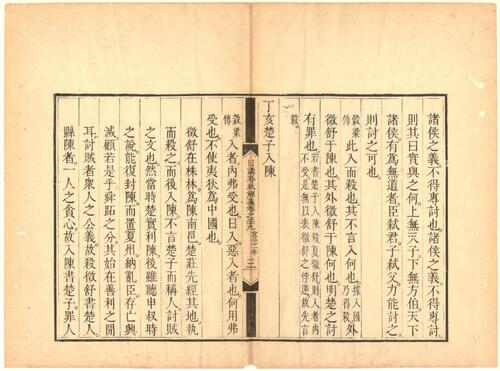 諸侯之義不得專討也諸侯之義不得專討
則其曰實與之何上無天子下無方伯天下
諸侯有為無道者臣弒君子弒父力能討之
則討之可也。
穀梁傳此入而殺也其不言入何也據入國乃得殺外
徵舒于陳也其外徵舒于陳何也明楚之討
有罪也。若書楚子入陳殺夏徵舒則入者內不受是無以表徵舒之悖逆故先言
殺。
丁亥楚子入陳
日講春秋解義卷三十
三
穀梁傳入者內弗受也日入惡入者也何用弗
受也不使夷狄為中國也。
徵舒在株林為陳南邑楚莊先經其地執
而殺之而後入陳不言楚子而稱人討賊
之文也。然當時楚實利陳後雖聽申叔時
之說能復封陳而置夏州納亂臣存亡興
滅顧若是乎舜跖之分其始在善利之間
耳討賊者衆人之公義故殺徵舒書楚人
縣陳者一人之貪心故入陳書楚子罪人